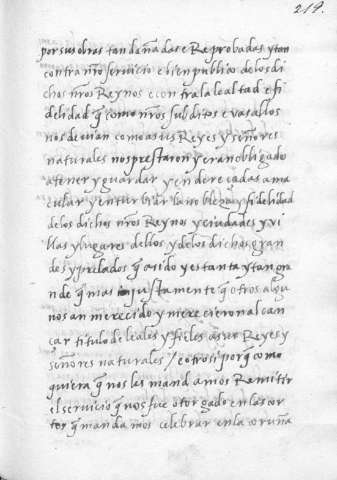 219.
por sus obras tan dañadas e Reprobadas y tan
contra nr̃o serviçio e bien publico de los di
chos nr̃os Reynos e contra la lealtad e fi
delidad q̃ como nr̃os subditos e vasallos
nos devian como a sus Reyes y señores
naturales nos prestaron y eran obligados
a tener y guardar y enderecadas a ma
cular y enturbiar la nobleza y fidelidad
de los dichos nr̃os Reynos y ciudades y vi
llas y lugares dellos y de los dichos gran
des y prelados q̃ a sido y es tanta y tan gra
nde q̃ mas injustamente q̃ otros algu
nos an merecido y merecieron alcan
çar titulo de leales y fieles a sus Reyes y
señores naturales / e otrosi porq̃ como
quiera q̃ nos les mandamos Remitir
el servicio q̃ nos fue otorgado en las cor
tes q̃ mandamos celebrar en la coruña